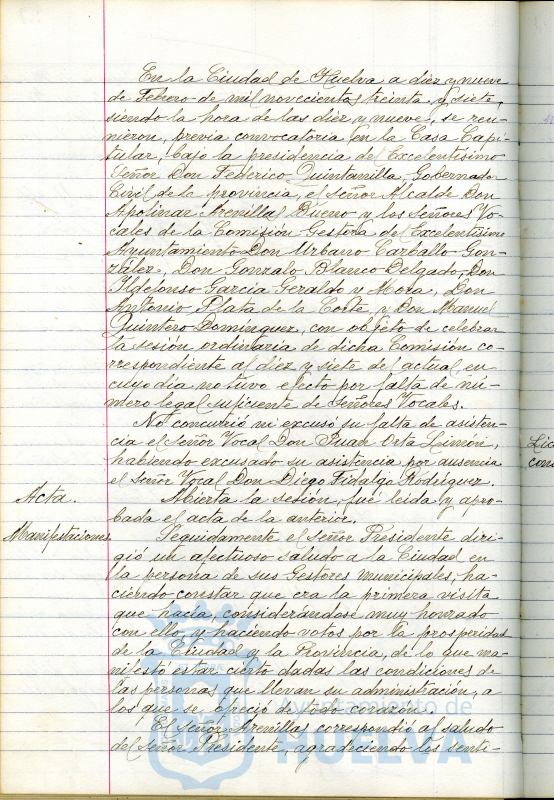 En la Ciudad de Huelva a diez y nueve
de Febrero de mil novecientos treinta y siete,
siendo la hora de las diez y nueve, se reu-
nieron, previa convocatoria en la Casa Capi-
tular, bajo la presidencia de Excelentísimo
Señor Don Federico Quintanilla, Gobernador
Civil de la provincia, el señor Alcalde Don
Apolinar Arenillas Bueno y los señores Vo-
cales de la Comisión Gestora del Excelentísimo
Ayuntamiento Don Urbano Carballo Gon-
zález, Don Gonzalo Blanco Delgado, Don
Ildefonso García Geraldo y Mora, Don
Antonio Plata de la Corte y Don Manuel
Quintero Dominguez, con objeto de celebrar
la sesión ordinaria de dicha Comisión co-
rrespondiente al diez y siete del actual, en
cuyo día no tuvo efecto por falta de nú-
mero legal suficiente de Señores Vocales.
No concurrió ni excusó su falta de asisten-
cia el Señor Vocal Don Juan Orta Limón,
habiendo excusado su asistencia por ausencia
el Señor Vocal Don Diego Fidalgo Rodríguez.
Acta. Abierta la sesión, fué leida y apro-
bada el acta de la anterior.
Manifestaciones. Seguidamente el Señor Presidente diri-
gió un afectuoso saludo a la Ciudad en
la persona de sus Gestores municipales, ha-
ciendo constar que era la primera visita
que hacía, considerándose muy honrado
con ello, y haciendo votos por la prosperidad
de la Ciudad y la Provincia, de lo que ma-
nifestó estar cierto dadas las condiciones de
las personas que llevan su administración, a
los que se ofreció de todo corazón.
El señor Arenillas correspondió al saludo
del Señor Presidente, agradeciendo los senti-
Ayuntamiento de
HUELVA